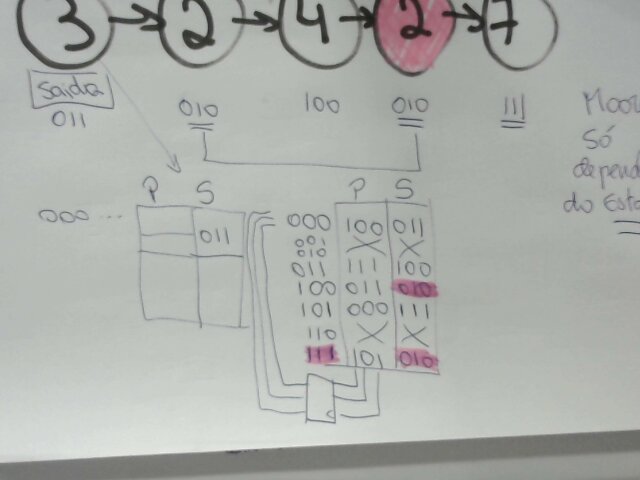 3 2 4 2 7
Saída
011 010 100 010 111
Moor
Só
depend
do Esta
P S P S
000 ... 011
000 100 011
001 X X
010
011 111 100
100 011 010
101 000 111
110 X X
111 101 010